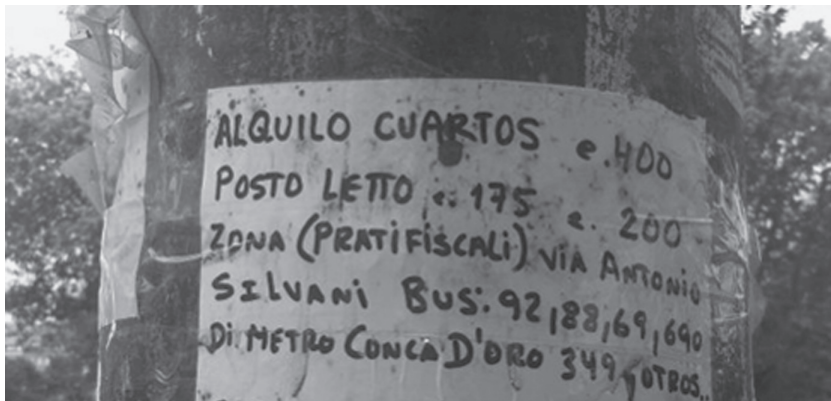 ALQUILO CUARTOS e.400
POSTO LETTO e. 175 e. 200
ZONA (PRATIFISCALi) ViA ANTONiO
SILVANi BUS: 92,88,69,690
Di METRO CONCA D'ORO 349, OTROS..